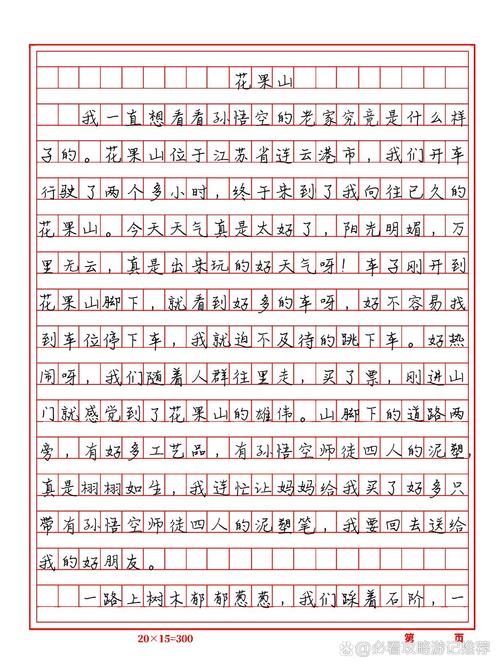 花果山
我一直想看看孙悟空的老家究竟是什么样
子的。花果山位于江苏省连云港市，我们开车
行驶了两个多小时，终于来到了我向往已久的
花果山。今天天气真是太好了，阳光明媚，万
里无云，真是出来玩的好天气呀！车子刚开到
花果山脚下，就看到好多的车呀，好不容易找
到车位停下车，我就迫不及待的跳下车。好热
闹呀，我们随着人群往里走，买了票，刚进山
门就感觉到了花果山的雄伟。山脚下的道路两
旁，有好多工艺品，有孙悟空师徒四人的泥塑，
真是栩栩如生，我连忙让妈妈给我买了好多只
带有孙悟空师徒四人的泥塑笔，我要回去送给
我的好朋友。
一路上树木郁郁葱葱，我们踩着石阶，一
20×15=300 第 页
@必看攻略游记推荐